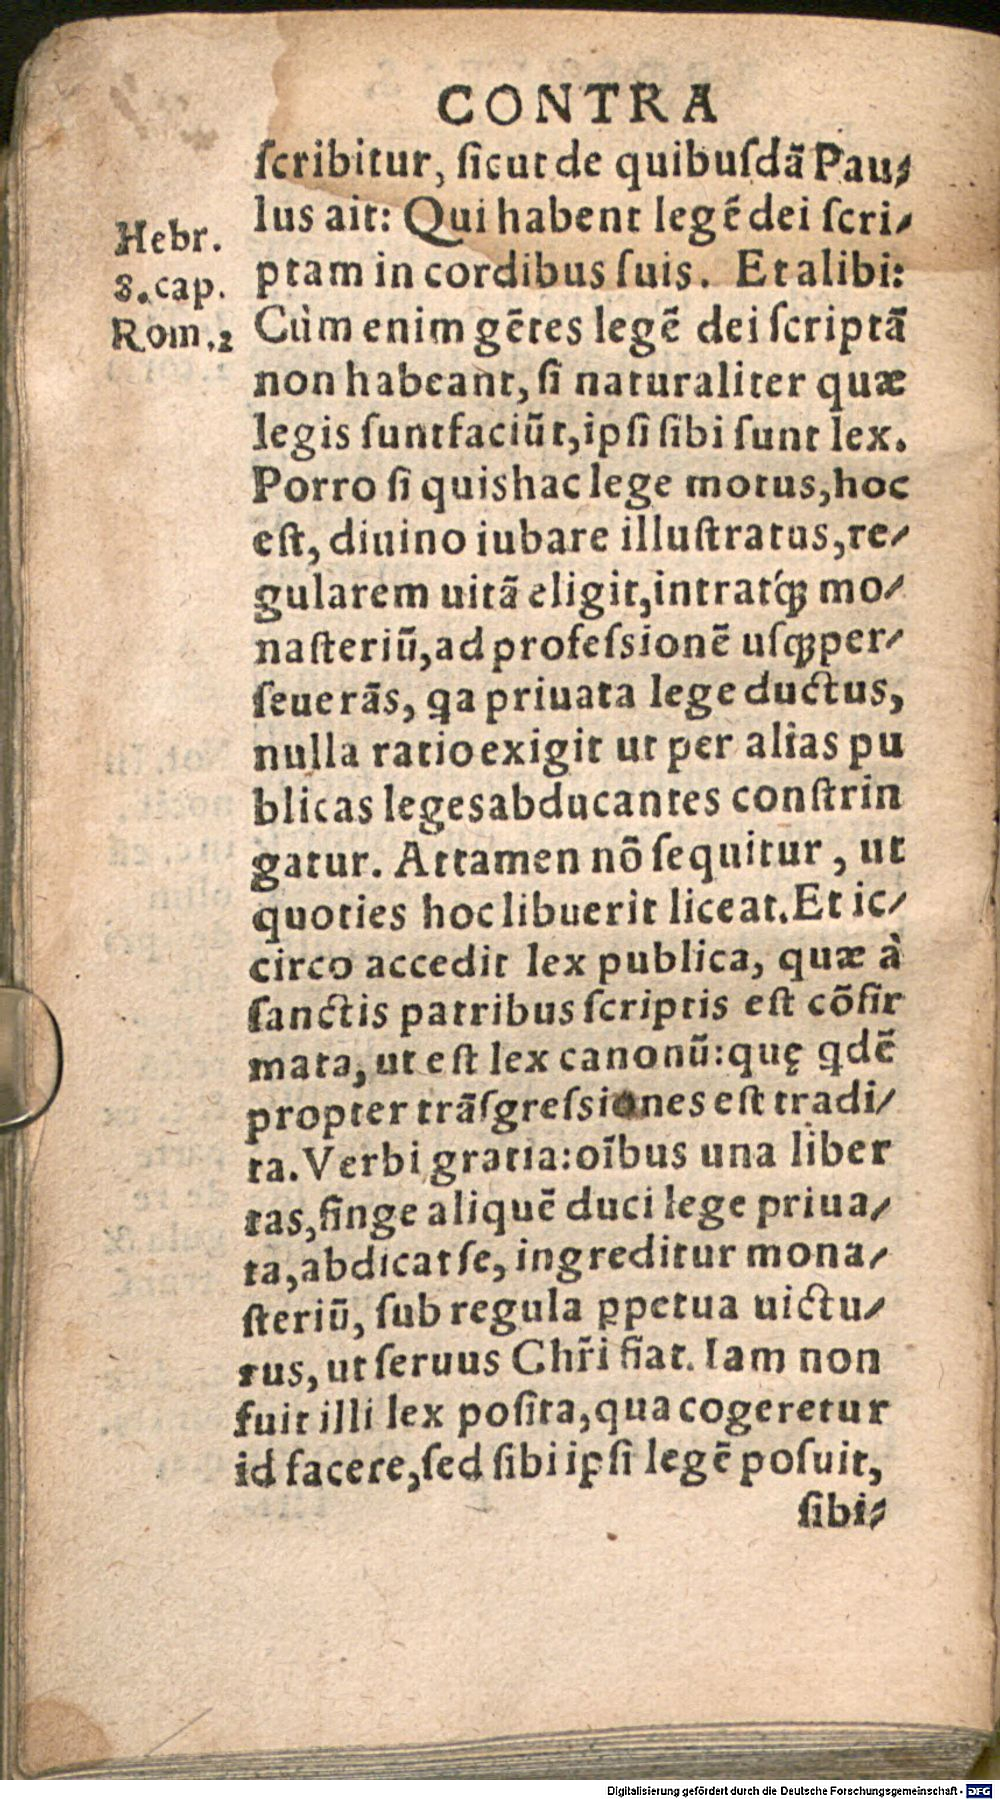 CONTRA
ſcribitur, ſicut de quibuſdã Pau⸗
lus ait: Qui habent legẽ dei ſcri⸗
Hebr.
8.cap.
Rom.2
ptam in cordibus ſuis. Et alibi:
Cùm enim gẽtes legẽ dei ſcriptã
non habeant, ſi naturaliter quæ
legis ſunt faciũt, ipſi ſibi ſunt lex.
Porro ſi quis hac lege motus, hoc
eſt, diuino iubare illuſtratus, re⸗
gularem uitã eligit, intratq́ꝫ mo⸗
naſteriũ, ad profeſsionẽ uſqꝫ per⸗
ſeuerãs, ꝗa priuata lege ductus,
nulla ratio exigit ut per alias pu
blicas leges abducantes conſtrin
gatur. Attamen nõ ſequitur, ut
quoties hoc libuerit liceat. Et ic⸗
circo accedit lex publica, quæ à
ſanctis patribus ſcriptis eſt cõfir
mata, ut eſt lex canonũ: quę ꝗdẽ
propter trãſgreſsiones eſt tradi⸗
ta. Verbi gratia: oĩbus una liber
tas, finge aliquẽ duci lege priua⸗
ta, abdicat ſe, ingreditur mona⸗
ſteriũ, ſub regula ꝑpetua uictu⸗
rus, ut ſeruus Chr̃i fiat. Iam non
fuit illi lex poſita, qua cogeretur
id facere, ſed ſibi ipſi legẽ poſuit,
ſibi⸗
Digitalisierung gefördert durch die Deutsche Forschungsgemeinschaft - DFG